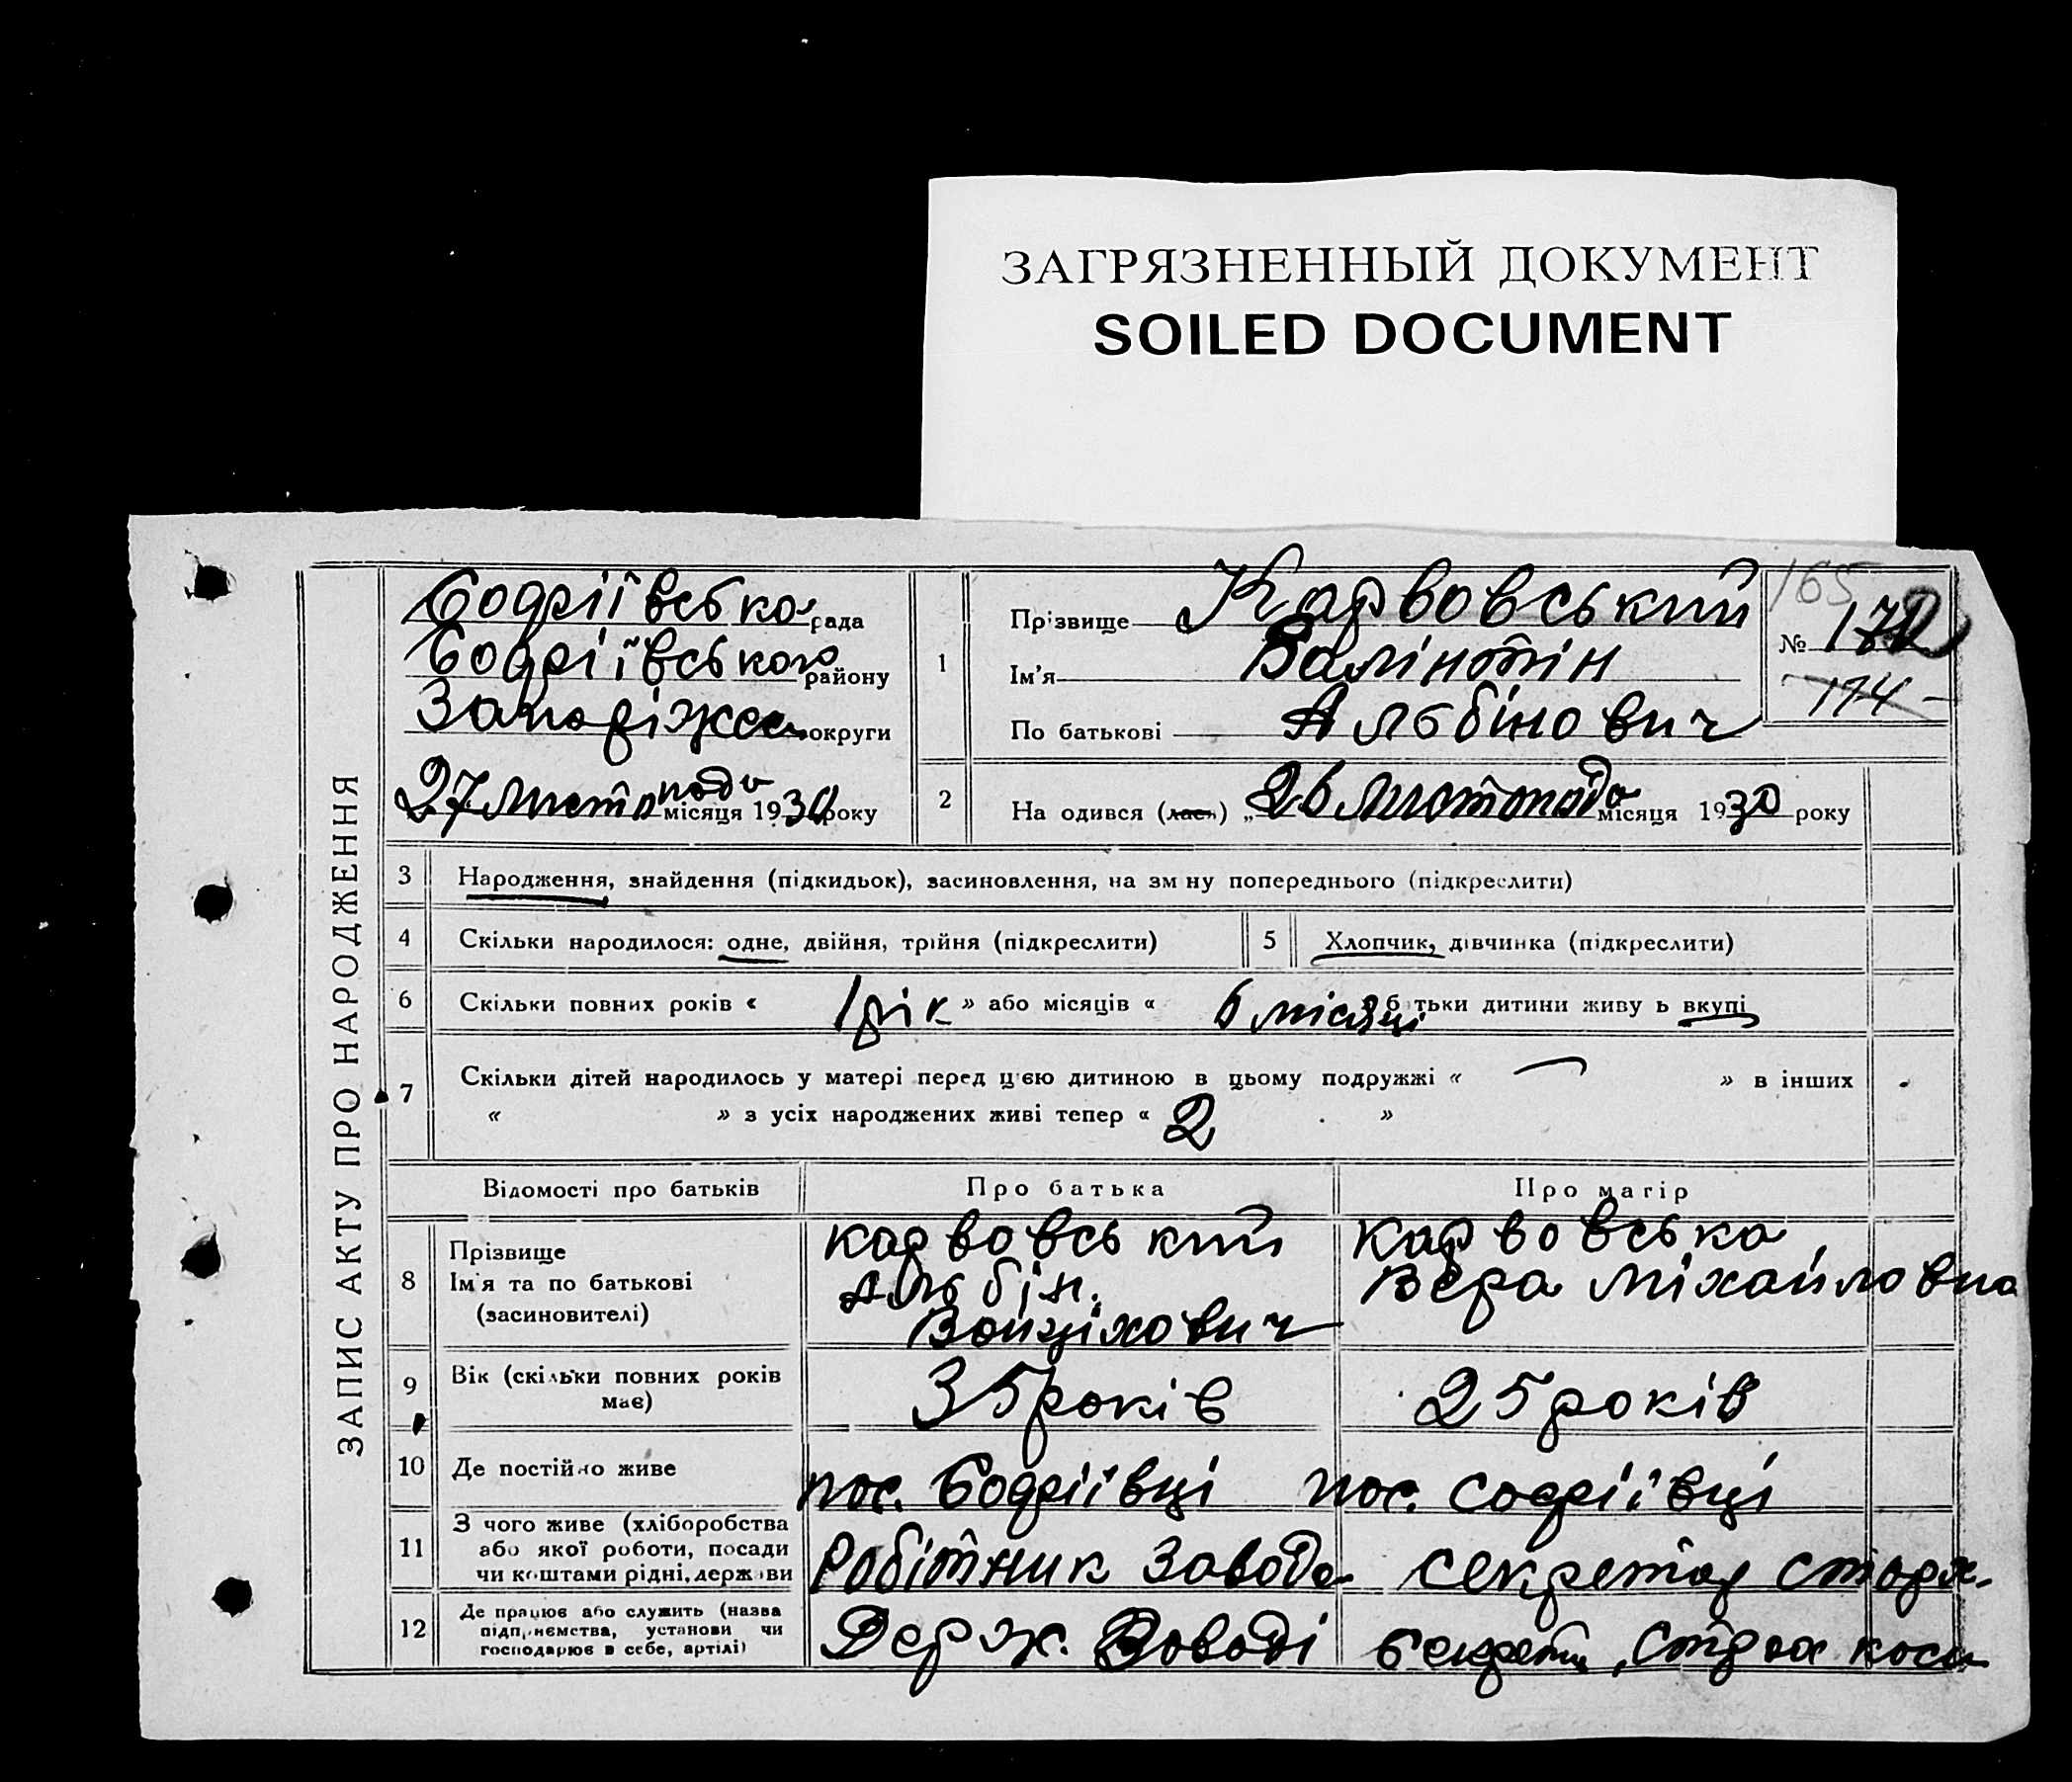 ЗАГРЯЗНЕННЫЙ ДОКУМЕНТ
SOILED DOCUMENT
ЗАПИС АКТУ ПРО НАРОДЖЕННЯ
Софіївська рада
Софіївського району
Запоріжськ округи
27 листопада місяця 1930 року
1
Прізвище Карвовський
Ім'я Валінтін
По батькові Альбінович
165
№ 172
174
2 На одився (лась) „26 листопада місяця 1930 року
3 Народження, знайдення (підкидьок), засиновлення, на зм ну попереднього (підкреслити)
4 Скільки народилося: одне, двійня, трійня (підкреслити) 5 Хлопчик, дівчинка (підкреслити)
6 Скільки повних років « 1 рік » або місяців « 6 місяці б тьки дитини живу ь вкупі
7 Скільки дітей народилось у матері перед цією дитиною в цьому подружжі « — » в інших
« » з усіх народжених живі тепер « 2 »
Відомості про батьків Про батька Про матір
8 Прізвище
Ім'я та по батькові
(засиновителі)
Карвовський
Альбін.
Войціхович
Карвовська
Вєра Міхайловна
9 Вік (скільки повних років має) 35 років 25 років
10 Де постійно живе пос. Софіївці пос. Софіївці
11 З чого живе (хліборобства
або якої роботи, посади
чи коштами рідні, держави
Робітник Завода Секретар страх.
12 Де працює або служить (назва
підприємства, установи чи
господарює в себе, артілі)
Держ. Заводі Секрет. Страх каси